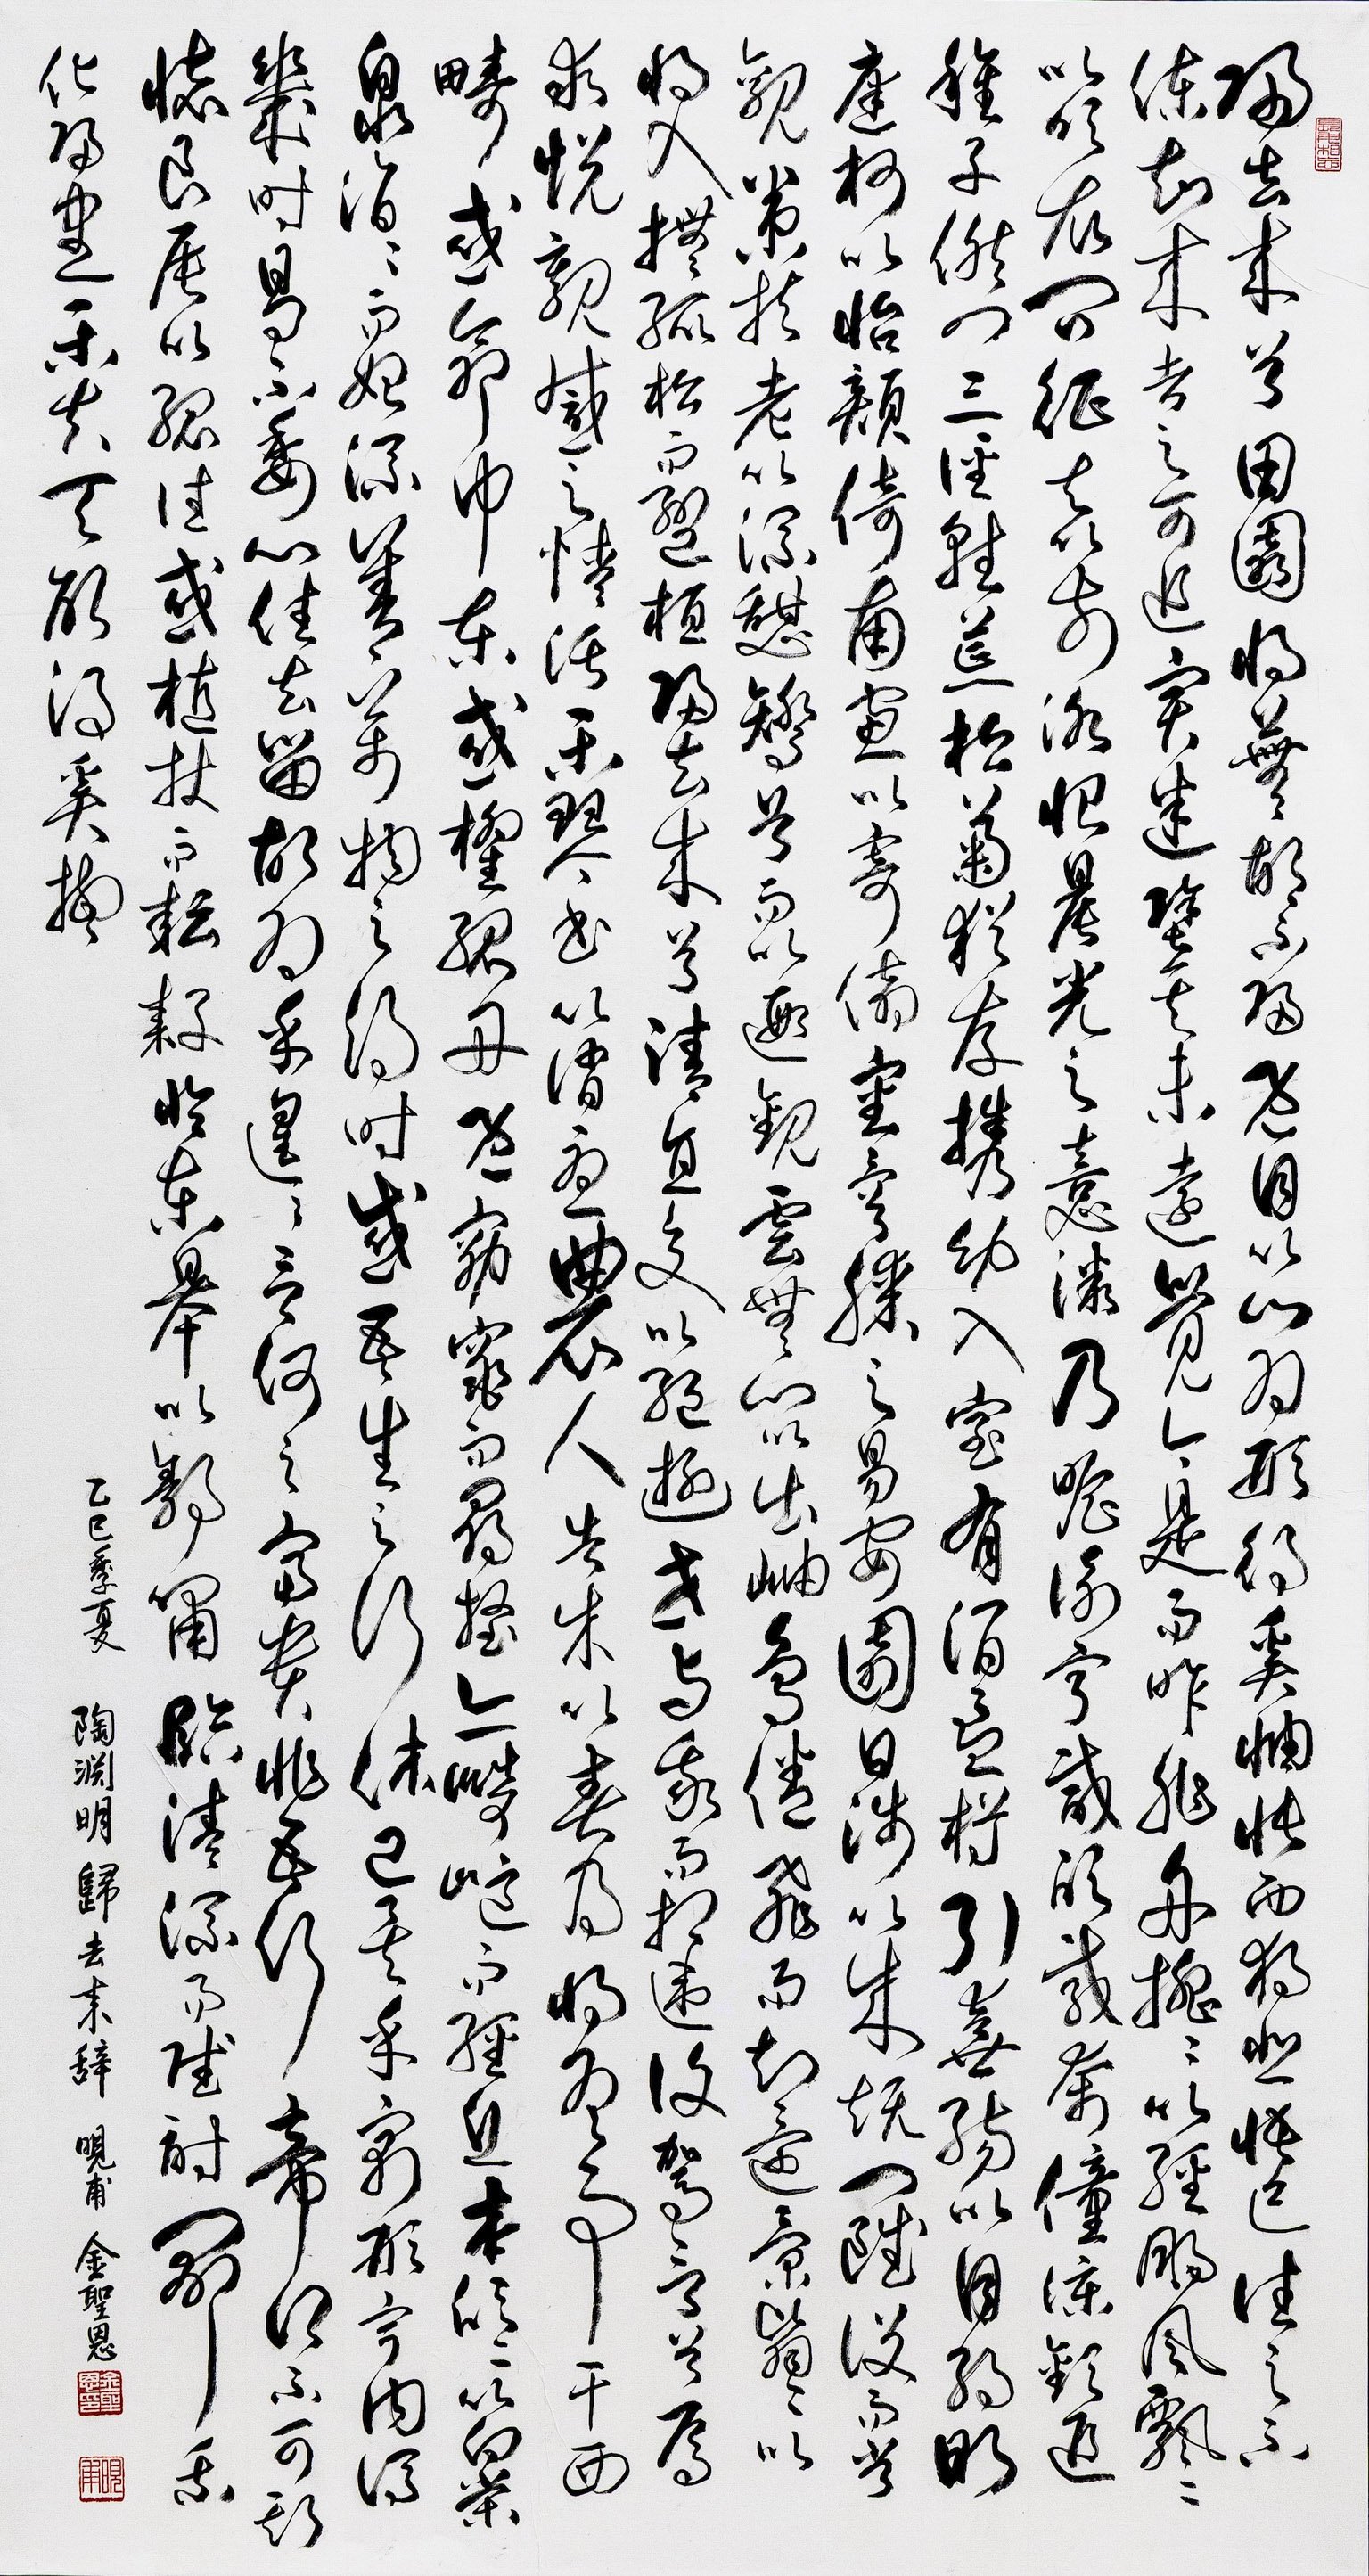 歸去來兮田園將蕪胡不歸旣自以心爲形役奚惆悵而獨悲悟已往之不
諫知來者之可追實迷塗其未遠覺今是而昨非舟搖〻以輕颺風飄〻
以吹衣問征夫以前路恨晨光之熹微乃瞻衡宇載欣載奔僮僕歡迎
稚子候門三徑就荒松菊猶存携幼入室有酒盈樽引壺觴以自酌眄
庭柯以怡顔倚南窓以寄傲審容膝之易安園日涉以成趣門雖設而常
關策扶老以流憩矯首而遐觀雲無心以出岫鳥倦飛而知還景翳〻以
將入撫孤松而盤桓歸去來兮請息交以絶遊世與我而相違復駕言兮焉
求悅親戚之情話樂琴書以消憂農人告余以春及將有事于西
疇或命巾車或櫂孤舟旣窈窕而尋壑亦崎嶇而經丘木欣〻以向榮
泉涓〻而始流善萬物之得時感吾生之行休已矣乎寓形宇內復
幾時曷不委心任去留胡爲乎遑〻何之富貴非吾願帝鄉不可期
懷良辰以孤往或植杖而耘耔登東皐以舒嘯臨淸流而賦詩聊乘
化歸盡樂夫天命復奚疑
乙巳季夏 陶淵明歸去來辭 晛甫 金聖恩